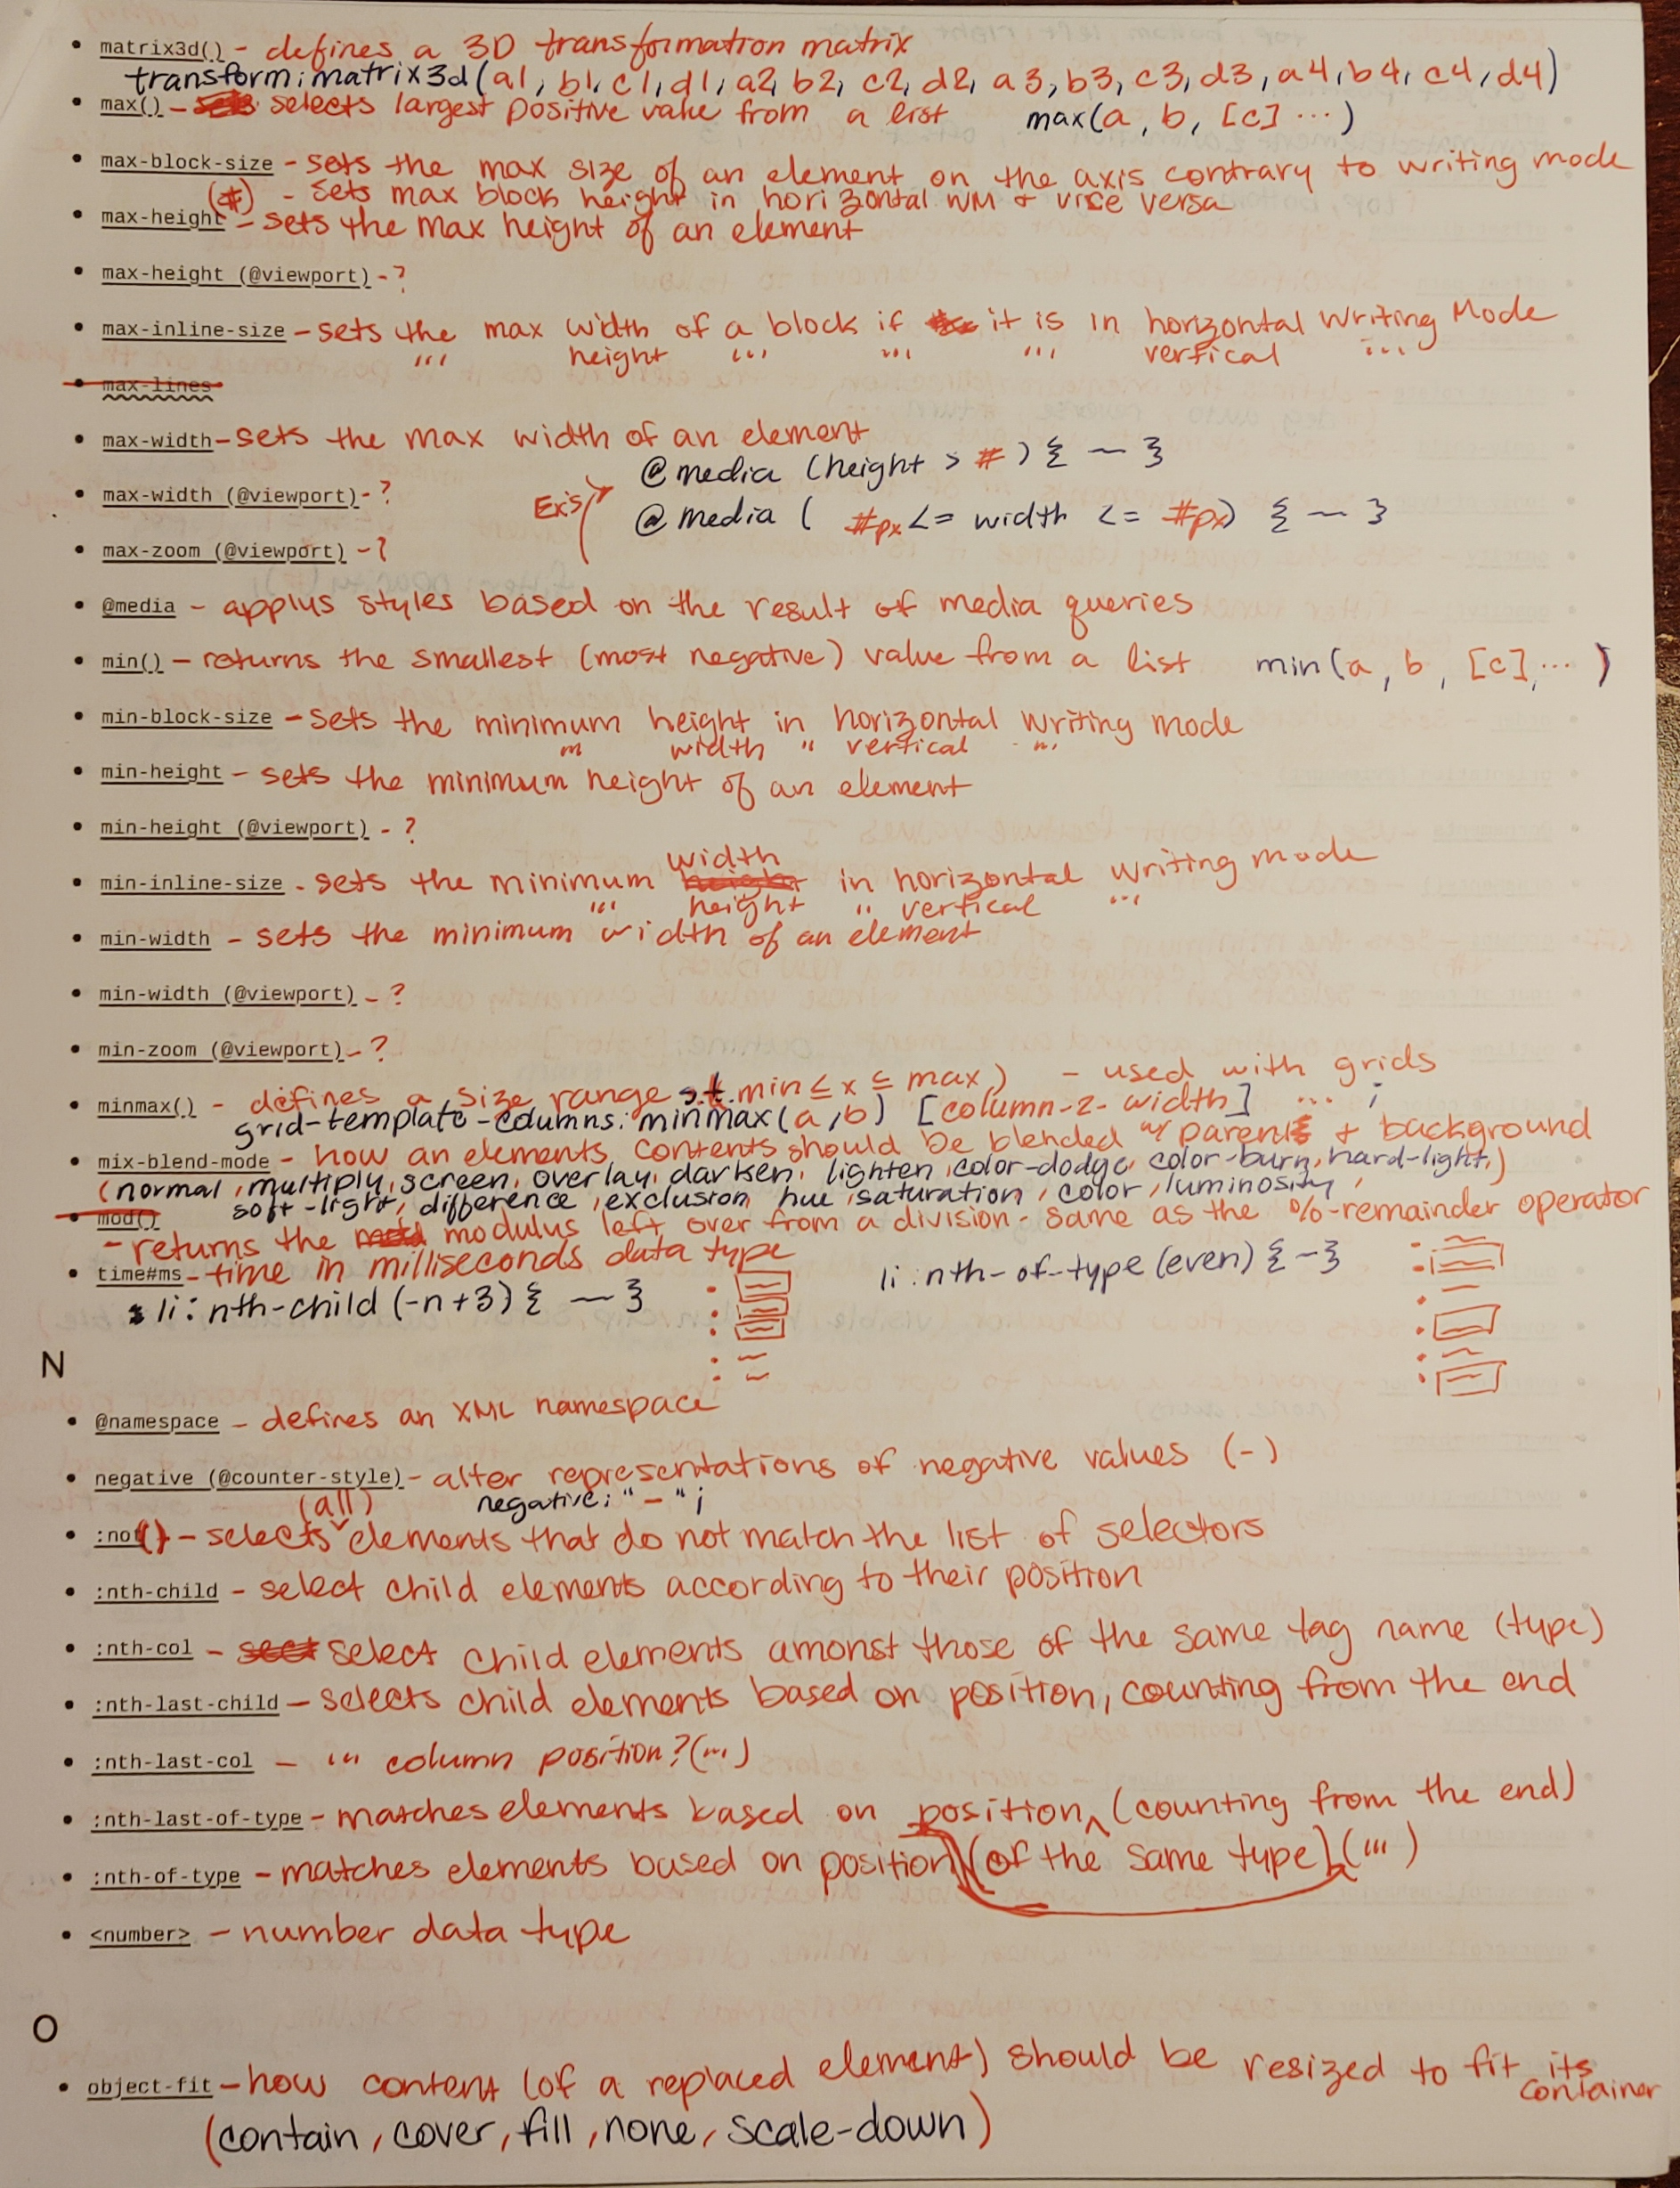 • matrix3d() - defines a 3D transformation matrix
transform: matrix3d(a1, b1, c1, d1, a2, b2, c2, d2, a3, b3, c3, d3, a4, b4, c4, d4)
• max() - selects largest positive value from a list max(a, b, [c] ...)
• max-block-size - sets the max size of an element on the axis contrary to writing mode
(#) - sets max block height in horizontal WM + vice versa
• max-height - sets the max height of an element
• max-height (@viewport) - ?
• max-inline-size - sets the max width of a block if it is in horizontal Writing Mode
"' height "' "' "' vertical "'
• max-lines
• max-width - sets the max width of an element
@media (height > #) { ~ }
• max-width (@viewport) - ? Ex's
@media ( #px <= width <= #px) { ~ }
• max-zoom (@viewport) - ?
• @media - applus styles based on the result of media queries
• min() - returns the smallest (most negative) value from a list min(a, b, [c], ... )
• min-block-size - sets the minimum height in horizontal writing mode
"' width " vertical "'
• min-height - sets the minimum height of an element
• min-height (@viewport) - ?
width
• min-inline-size - sets the minimum height in horizontal writing mode
"' height " vertical "'
• min-width - sets the minimum width of an element
• min-width (@viewport) - ?
• min-zoom (@viewport) - ?
• minmax() - defines a size range s.t. min ≤ x ≤ max) - used with grids
grid-template-columns: minmax(a,b) [column-2-width] ... ;
• mix-blend-mode - how an elements contents should be blended w/ parent + background
(normal, multiply, screen, overlay, darken, lighten, color-dodge, color-burn, hard-light,)
soft-light, difference, exclusion, hue, saturation, color, luminosity,
• mod()
- returns the modulus left over from a division - same as the %-remainder operator
• time#ms - time in milliseconds data type
li:nth-of-type(even) { ~ }
li:nth-child(-n+3) { ~ }
N
• @namespace - defines an XML namespace
• negative (@counter-style) - alter representations of negative values (-)
negative: "-";
(all)
• :not() - selects elements that do not match the list of selectors
• :nth-child - select child elements according to their position
• :nth-col - select child elements amonst those of the same tag name (type)
• :nth-last-child - selects child elements based on position, counting from the end
• :nth-last-col - "' column position? ("')
• :nth-last-of-type - matches elements based on position (counting from the end)
• :nth-of-type - matches elements based on position (of the same type) ("')
• <number> - number data type
O
• object-fit - how content (of a replaced element) should be resized to fit its
container
(contain, cover, fill, none, scale-down)